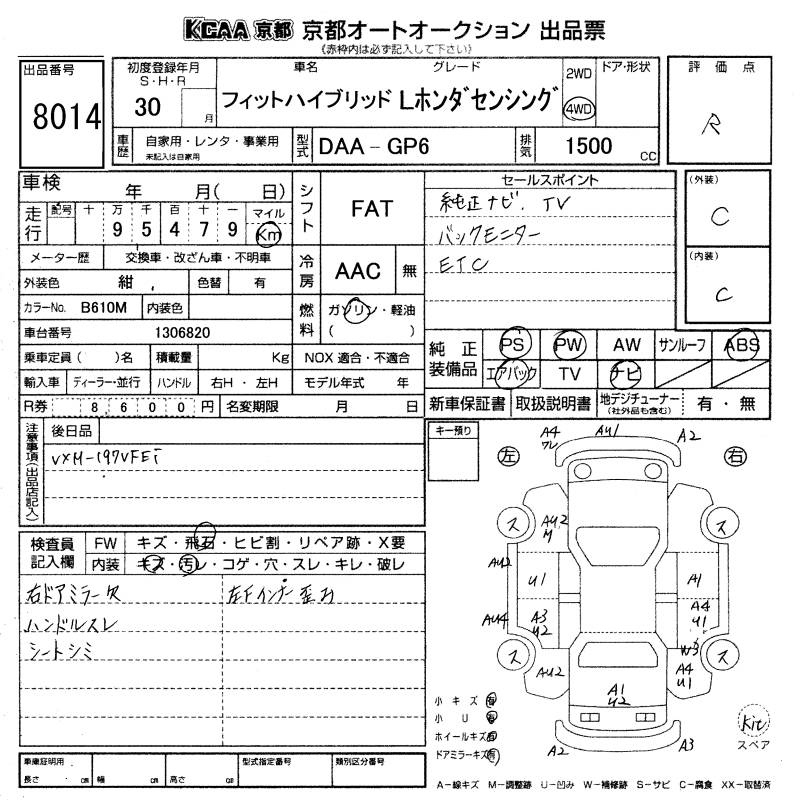 KCAA 京都 京都オートオークション 出品票
(赤枠内は必ず記入して下さい)
出品番号
8014
初度登録年月
S・H・R
30
月
車名
グレード
フィットハイブリッド Lホンダセンシング
2WD
4WD
ドア・形状
評価点
R
車歴
自家用・レンタ・事業用
未記入は自家用
型式
DAA－GP6
排気
1500
CC
車検
年
月(
日)
走行
記号
十
万
千
百
十
一
マイル
9
5
4
7
9
Km
メーター歴
交換車・改ざん車・不明車
外装色
紺
色替
有
カラーNo.
B610M
内装色
車台番号
1306820
乗車定員( )名
積載量
Kg
輸入車
ディーラー・並行
ハンドル
右H・左H
R券
8600円
名変期限
月
日
シフト
FAT
冷房
AAC
無
燃料
ガソリン・軽油
( )
NOX 適合・不適合
モデル年式
年
セールスポイント
純正ナビ. TV
バックモニター
ETC
(外装)
C
(内装)
C
純正装備品
PS
PW
AW
サンルーフ
ABS
エアバック
TV
ナビ
新車保証書
取扱説明書
地デジチューナー
(社外品も含む)
有・無
注意事項(出品店記入)
後日品
VXM-197VFEi
検査員記入欄
FW
キズ・飛石・ヒビ割・リペア跡・X要
内装
キズ・汚レ・コゲ・穴・スレ・キレ・破レ
右ドアミラー欠
左Fインナー歪
ハンドルスレ
シートシミ
車庫証明用
長さ
cm
幅
cm
高さ
cm
型式指定番号
類別区分番号
キー預り
左
右
A4
ワレ
AU1
A2
ス
ス
AU2
M
AU2
U1
A1
AU4
A3
U2
A4
U1
W3
ス
ス
AU2
A4
U1
A1
U2
A2
A3
小キズ 有
小U 有
ホイールキズ 有
ドアミラーキズ 有
Kit
スペア
A－線キズ M－調整跡 U－凹み W－補修跡 S－サビ C－腐食 XX－取替済